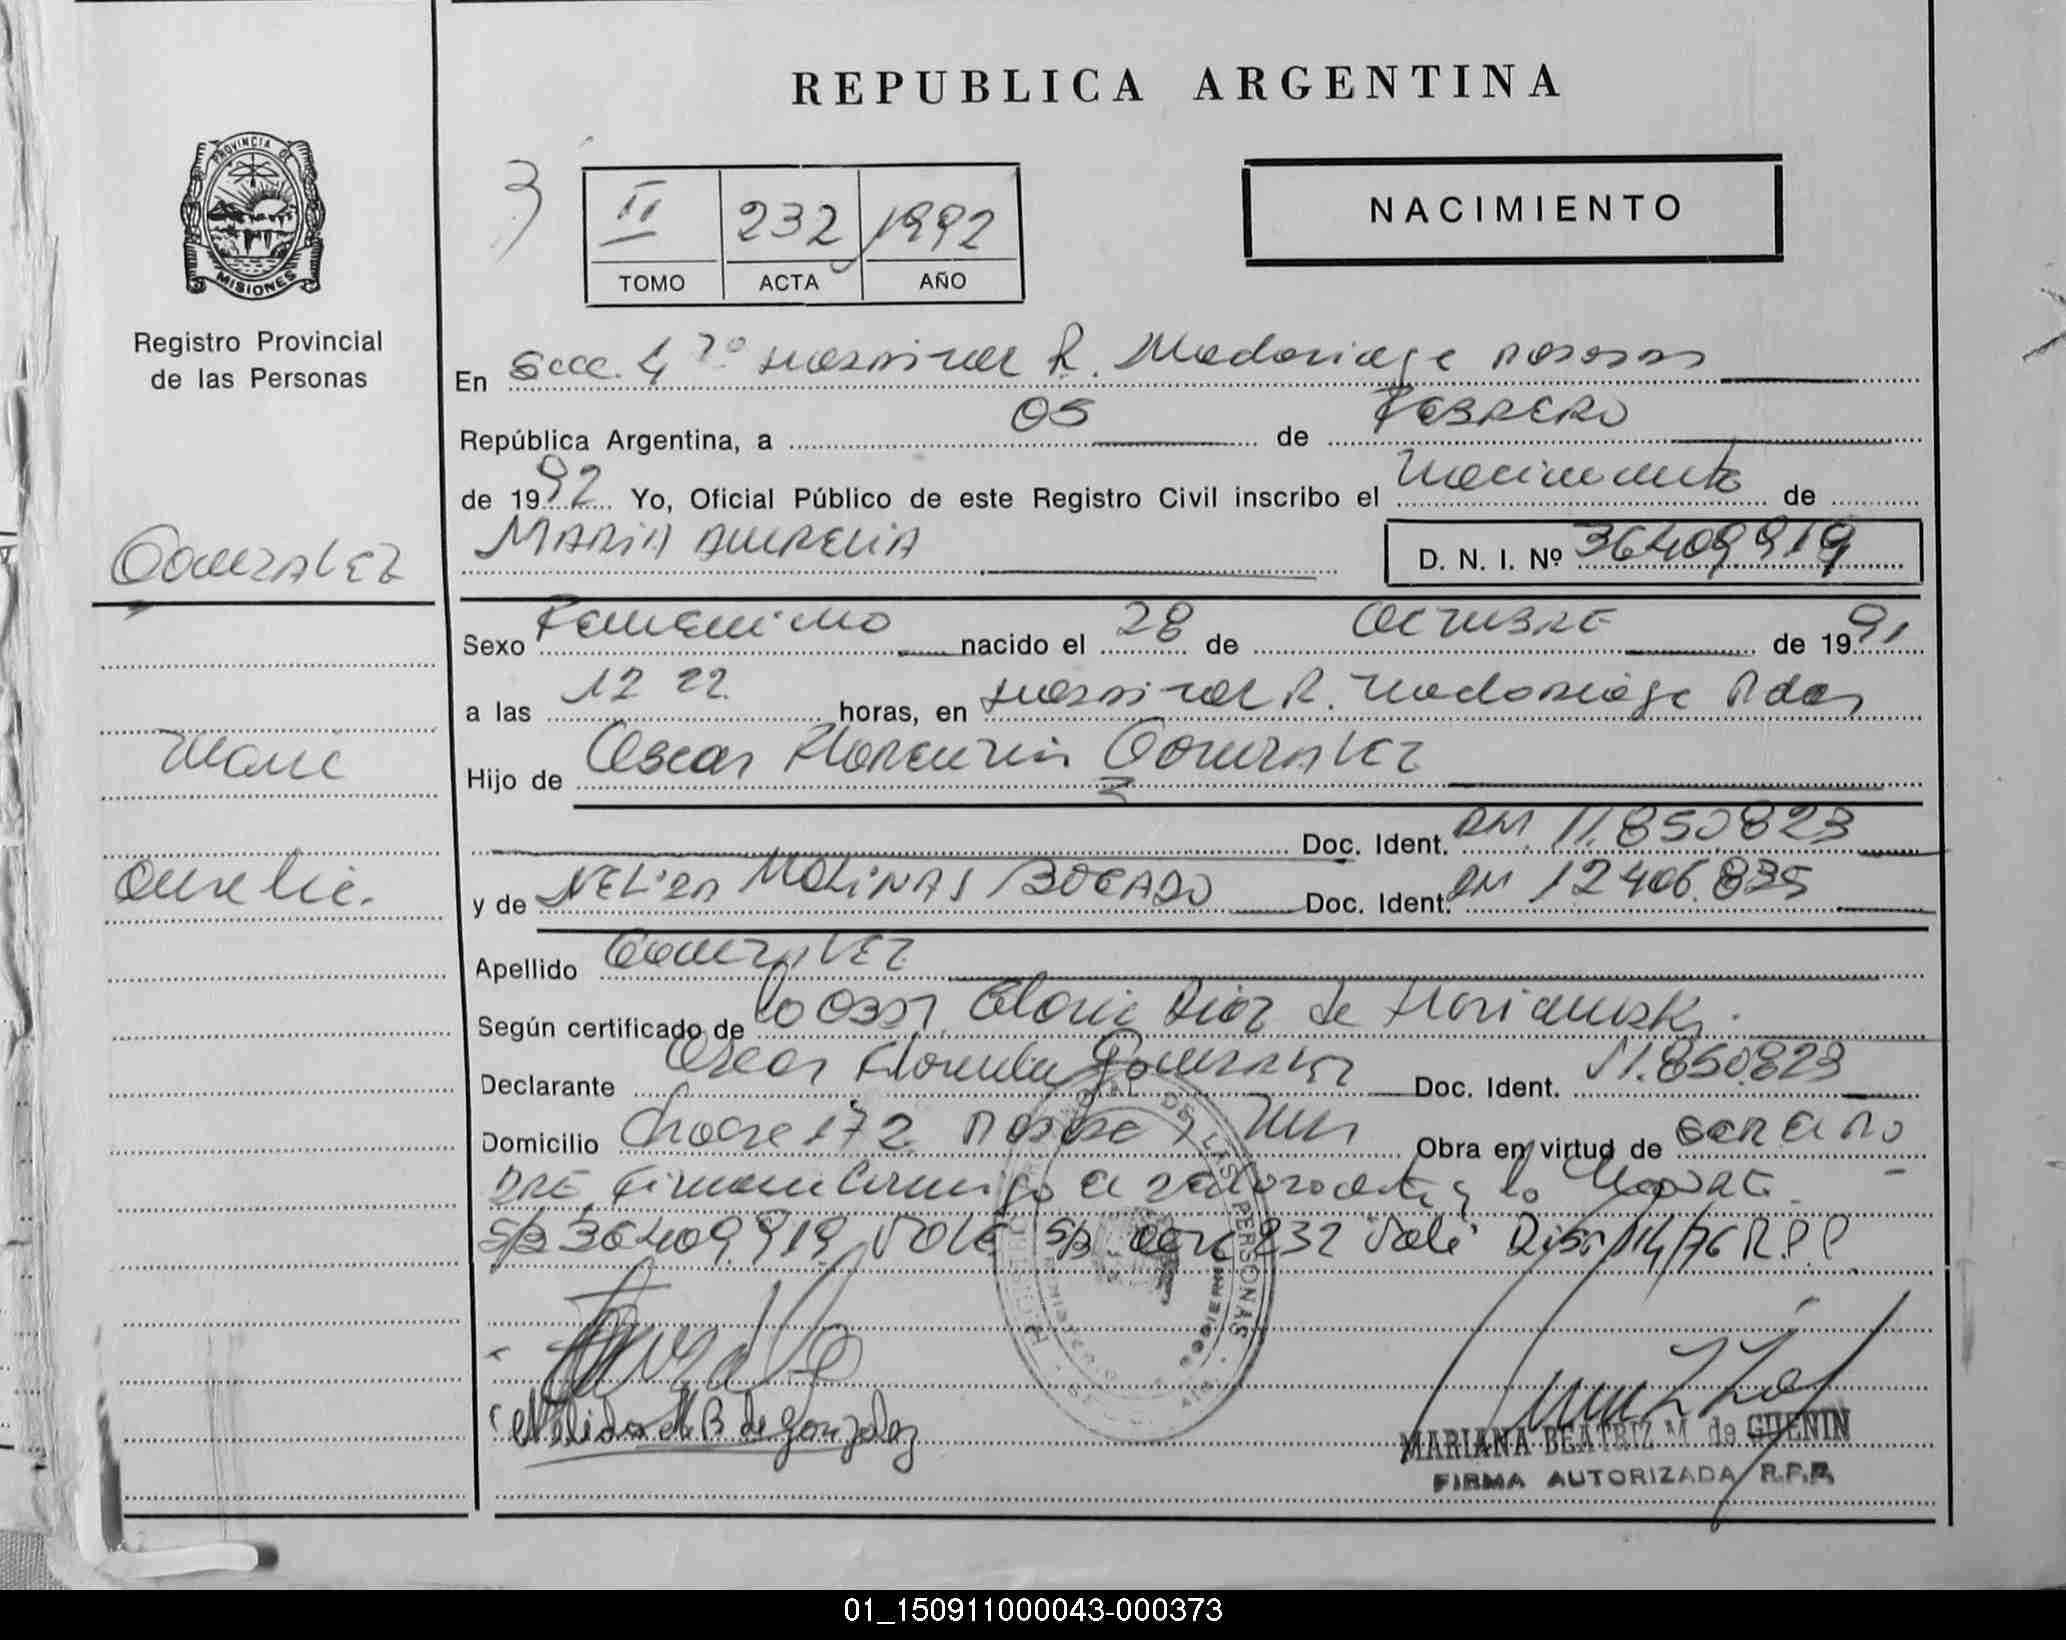 REPUBLICA ARGENTINA
PROVINCIA DE
MISIONES
Registro Provincial
de las Personas
3
II 232 1992
TOMO ACTA AÑO
NACIMIENTO
En Secc. 4 Hospital R. Madariaga Posadas
República Argentina, a 05 de FEBRERO
de 1992 Yo, Oficial Público de este Registro Civil inscribo el nacimiento de
MARIA AURELIA D. N. I. Nº 36409919
GONZALEZ
Maria
Aurelia.
Sexo Femenino nacido el 28 de OCTUBRE de 1991
a las 12 22 horas, en Hospital R. Madariaga Pdas
Hijo de Oscar Florentin GONZALEZ
Doc. Ident. DNI 11.850.823
y de NELIDA MOLINAS BOGADO Doc. Ident. DNI 12406.835
Apellido GONZALEZ
Según certificado de la Obst. Gloria Diaz de
Declarante Oscar Florentin Gonzalez Doc. Ident. 11.850.823
Domicilio Chacra 172 Obra en virtud de ser el PA
DRE Firman conmigo el declarante y la MADRE
S/B 36409.919 VALE S/B 232 Vale Disp 14/76 R.P.P.
DE LAS PERSONAS
Nelida M B de Gonzalez
MARIANA BEATRIZ M. de GUENIN
FIRMA AUTORIZADA R.P.P.
01_150911000043-000373